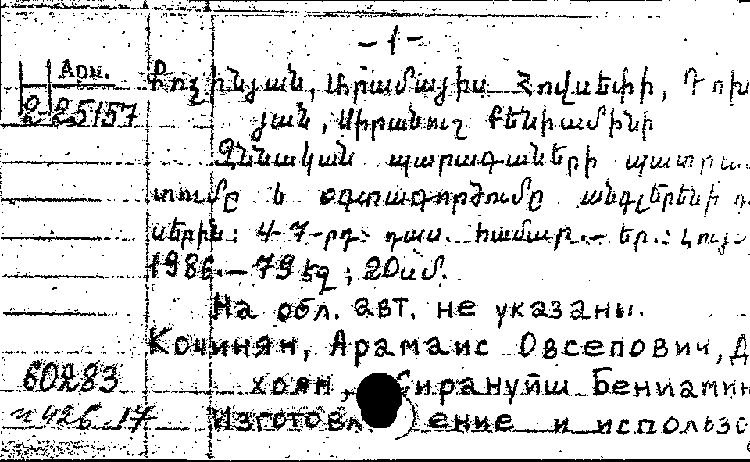 - 1 -
Арм.
2 25157
Քոչինյան, Արամայիս Հովսեփի, Դոխ
յան, Սիրանուշ Բենիամինի
Զննական պարագաների պատրաս
տումը և օգտագործումը անգլերենի դա
սերին: 4-7-րդ. դաս. համար. – Եր.: Լույս
1986. – 79 էջ; 20սմ.
На обл. авт. не указаны.
Кочинян, Арамаис Овсепович, Д
60283
хоян, Сирануйш Бениамин
и 426.17
Изготовление и использо